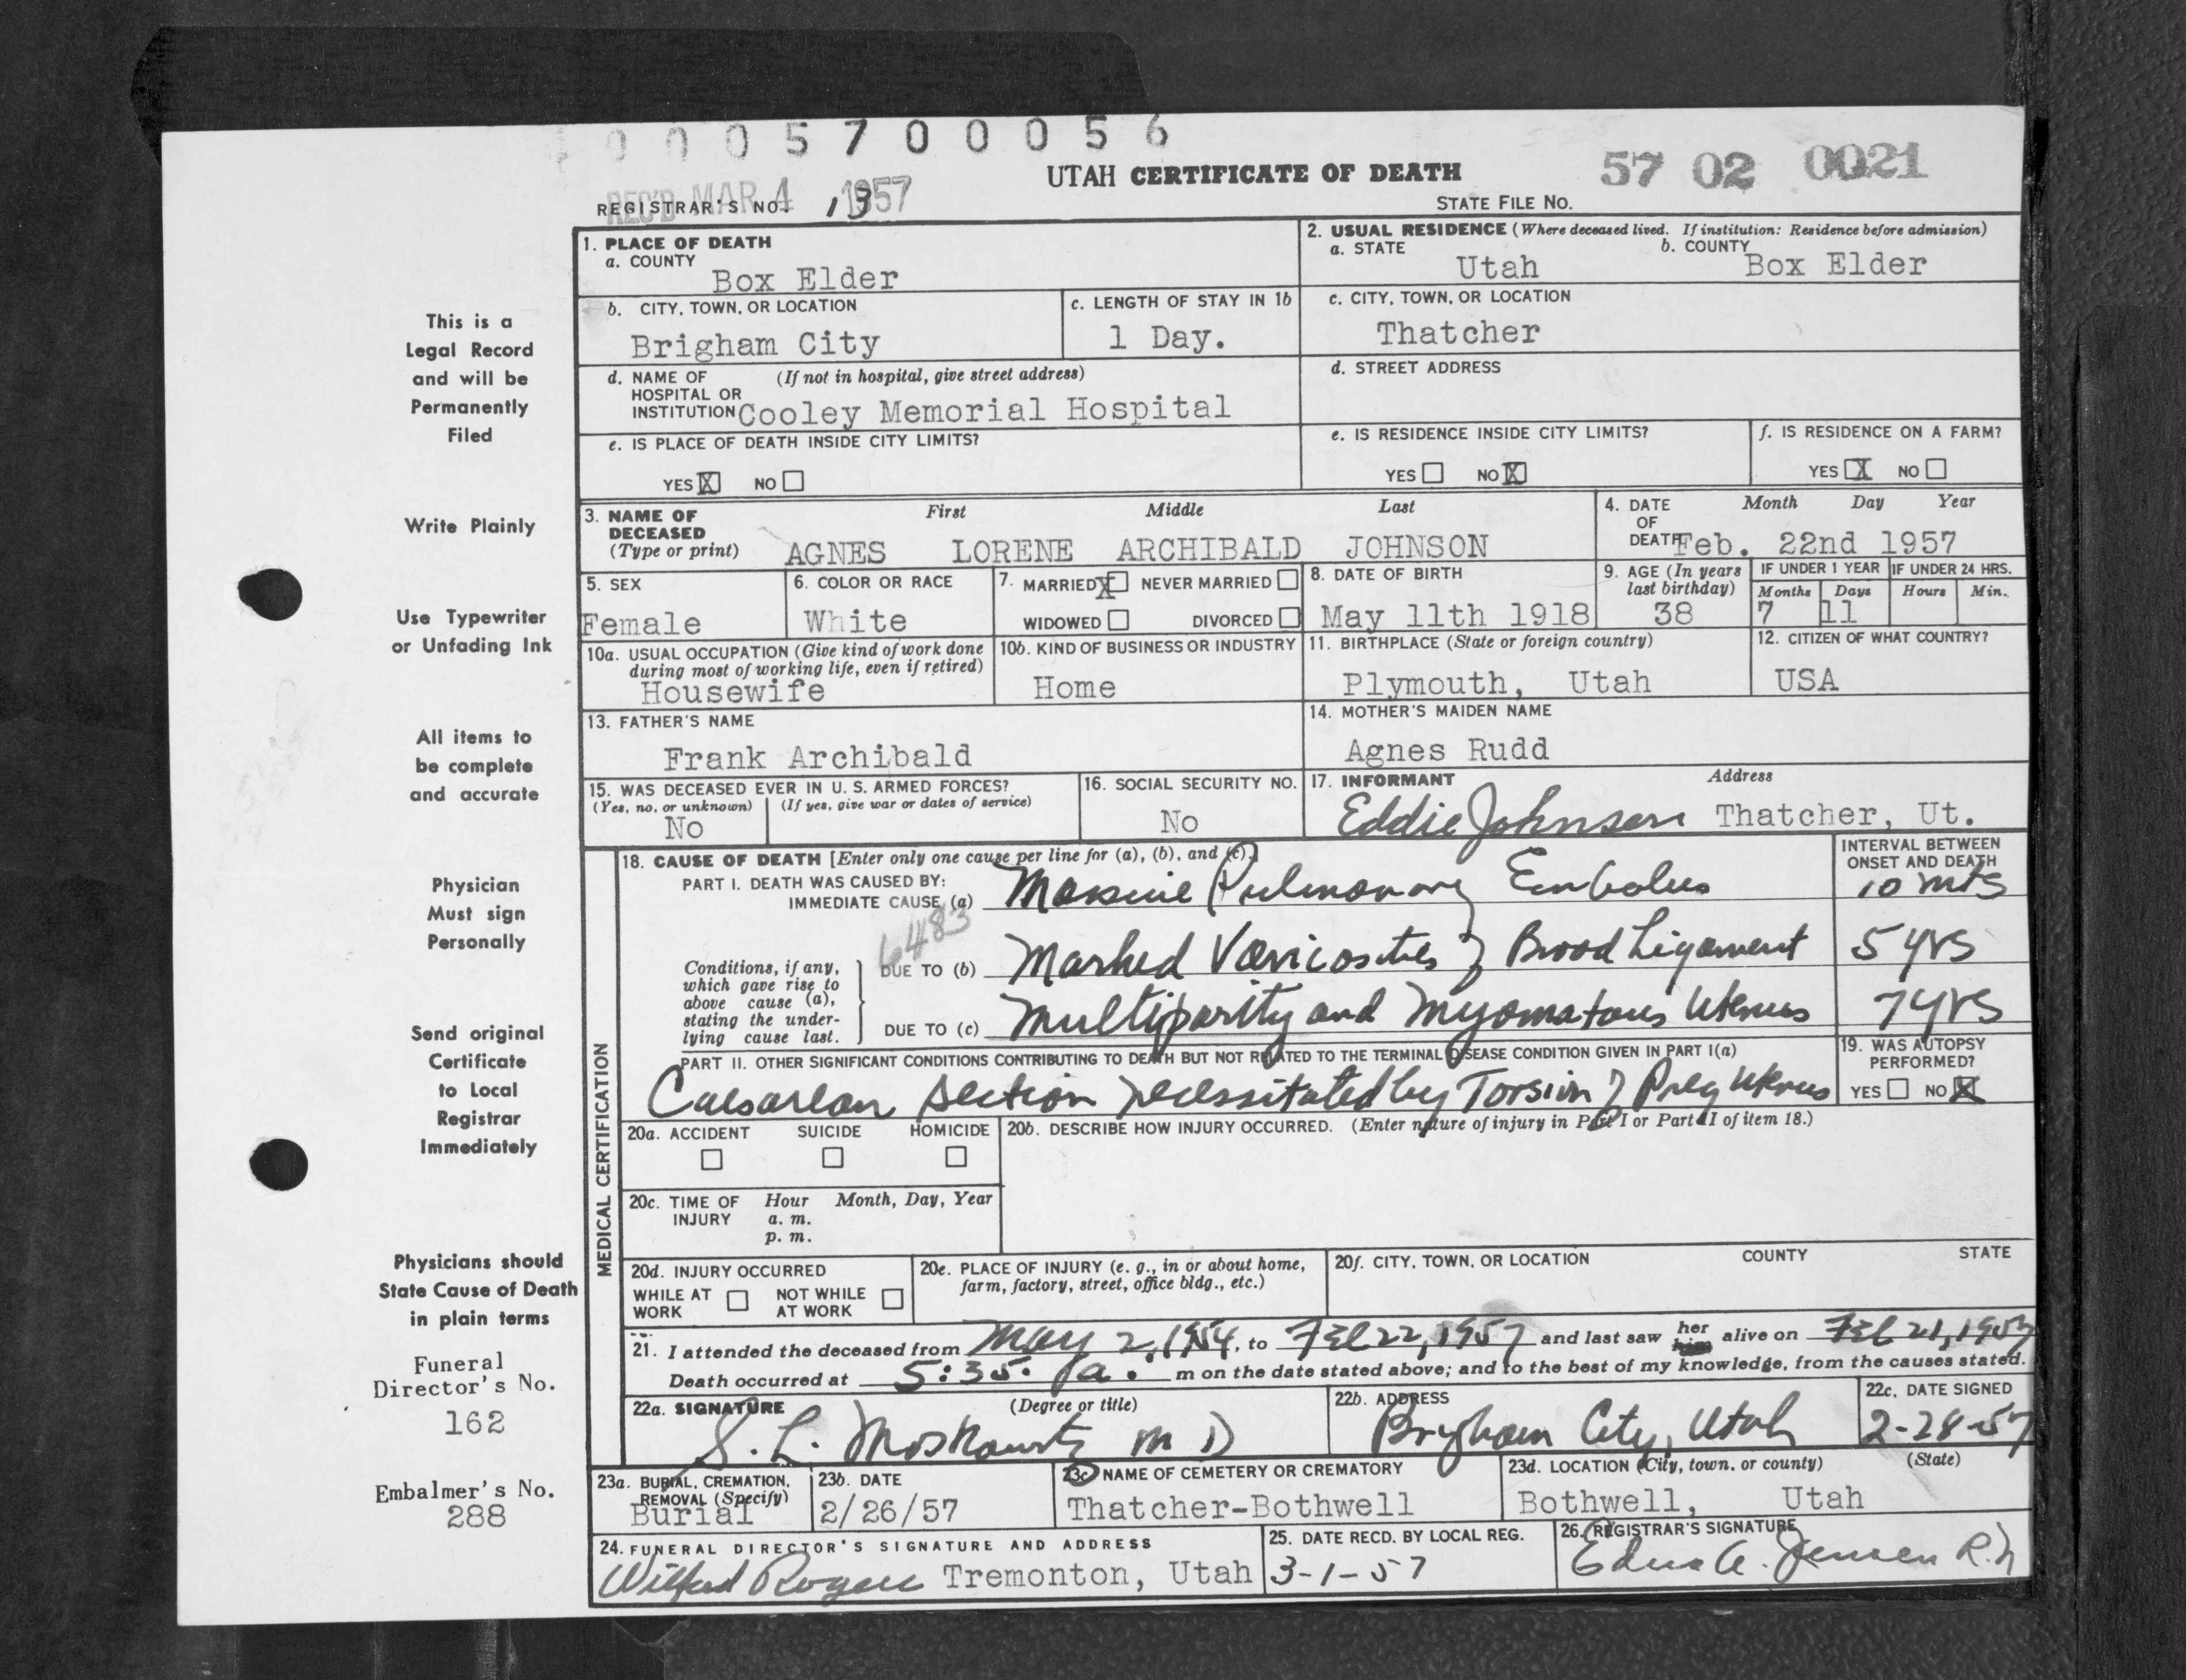 0 0 0 5 7 0 0 0 5 6
UTAH CERTIFICATE OF DEATH
57 02 0021
REC'D MAR 4 1957
REGISTRAR'S NO. 13
STATE FILE NO.
1. PLACE OF DEATH
a. COUNTY
Box Elder
2. USUAL RESIDENCE (Where deceased lived. If institution: Residence before admission)
a. STATE
Utah
b. COUNTY
Box Elder
b. CITY, TOWN, OR LOCATION
Brigham City
c. LENGTH OF STAY IN 1b
1 Day.
c. CITY, TOWN, OR LOCATION
Thatcher
d. NAME OF HOSPITAL OR INSTITUTION (If not in hospital, give street address)
Cooley Memorial Hospital
d. STREET ADDRESS
e. IS PLACE OF DEATH INSIDE CITY LIMITS?
YES X NO
e. IS RESIDENCE INSIDE CITY LIMITS?
YES NO X
f. IS RESIDENCE ON A FARM?
YES X NO
This is a
Legal Record
and will be
Permanently
Filed
Write Plainly
Use Typewriter
or Unfading Ink
All items to
be complete
and accurate
Physician
Must sign
Personally
Send original
Certificate
to Local
Registrar
Immediately
Physicians should
State Cause of Death
in plain terms
Funeral
Director's No.
162
Embalmer's No.
288
3. NAME OF DECEASED (Type or print)
First Middle Last
AGNES LORENE ARCHIBALD JOHNSON
4. DATE OF DEATH
Month Day Year
Feb. 22nd 1957
5. SEX
Female
6. COLOR OR RACE
White
7. MARRIED X NEVER MARRIED
WIDOWED DIVORCED
8. DATE OF BIRTH
May 11th 1918
9. AGE (In years last birthday)
38
IF UNDER 1 YEAR
Months Days
7 11
IF UNDER 24 HRS.
Hours Min.
10a. USUAL OCCUPATION (Give kind of work done during most of working life, even if retired)
Housewife
10b. KIND OF BUSINESS OR INDUSTRY
Home
11. BIRTHPLACE (State or foreign country)
Plymouth, Utah
12. CITIZEN OF WHAT COUNTRY?
USA
13. FATHER'S NAME
Frank Archibald
14. MOTHER'S MAIDEN NAME
Agnes Rudd
15. WAS DECEASED EVER IN U. S. ARMED FORCES?
(Yes, no, or unknown) (If yes, give war or dates of service)
No
16. SOCIAL SECURITY NO.
No
17. INFORMANT Address
Eddie Johnson Thatcher, Ut.
MEDICAL CERTIFICATION
18. CAUSE OF DEATH [Enter only one cause per line for (a), (b), and (c).]
INTERVAL BETWEEN ONSET AND DEATH
PART I. DEATH WAS CAUSED BY:
IMMEDIATE CAUSE (a) Massive Pulmonary Embolus 10 mts
6483
Conditions, if any, which gave rise to above cause (a), stating the underlying cause last.
DUE TO (b) Marked Varicosities of Broad Ligament 5 yrs
DUE TO (c) Multiparity and Myomatous Uterus 7 yrs
PART II. OTHER SIGNIFICANT CONDITIONS CONTRIBUTING TO DEATH BUT NOT RELATED TO THE TERMINAL DISEASE CONDITION GIVEN IN PART I(a)
Caesarean Section necessitated by Torsion of Preg Uterus
19. WAS AUTOPSY PERFORMED?
YES NO X
20a. ACCIDENT SUICIDE HOMICIDE
20b. DESCRIBE HOW INJURY OCCURRED. (Enter nature of injury in Part I or Part II of item 18.)
20c. TIME OF INJURY
Hour Month, Day, Year
a. m.
p. m.
20d. INJURY OCCURRED
WHILE AT WORK NOT WHILE AT WORK
20e. PLACE OF INJURY (e. g., in or about home, farm, factory, street, office bldg., etc.)
20f. CITY, TOWN, OR LOCATION COUNTY STATE
21. I attended the deceased from May 2, 1954, to Feb 22, 1957 and last saw her him alive on Feb 21, 1957
Death occurred at 5:35. a. m on the date stated above; and to the best of my knowledge, from the causes stated.
22a. SIGNATURE (Degree or title)
S. L. Moskowitz M D
22b. ADDRESS
Brigham City, Utah
22c. DATE SIGNED
2-28-57
23a. BURIAL, CREMATION, REMOVAL (Specify)
Burial
23b. DATE
2/26/57
23c. NAME OF CEMETERY OR CREMATORY
Thatcher-Bothwell
23d. LOCATION (City, town, or county) (State)
Bothwell, Utah
24. FUNERAL DIRECTOR'S SIGNATURE AND ADDRESS
Wilford Rogers Tremonton, Utah
25. DATE RECD. BY LOCAL REG.
3-1-57
26. REGISTRAR'S SIGNATURE
Edna A. Jensen R.N